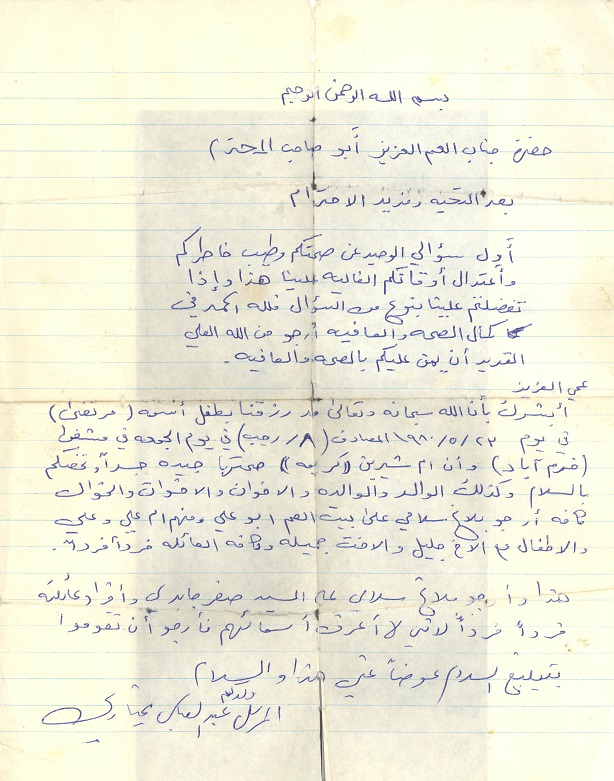 بسم الله الرحمن الرحيم
حضرة جناب العم العزيز أبو صاحب المحترم
بعد التحية ومزيد الاحترام
أول سؤالي الوحيد عن صحتكم وطيب خاطركم
وأعتدال أوقاتكم الغاليه علينا هذا وإذا
تفضلتم علينا بنوع من السؤال فلله الحمد في
كمال الصحه والعافيه أرجو من الله العلي
القدير أن يمن عليكم بالصحه والعافيه .
عمي العزيز
أبشرك بأن الله سبحانه وتعالى قد رزقنا بطفل أسمه (مرتضى)
في يوم ٢٣/٥/١٩٨٠ المصادف (٨/رجب) في يوم الجمعه في مشفى
(خرم آباد) وأن ام شيرين ((كريمه)) صحتها جيده جداً وتخصكم
بالسلام وكذلك الوالد والوالده والاخوان والاخوات والخوال
كافه أرجو بلاغ سلامي على بيت العم ابو علي ومنهم ام علي وعلي
والاطفال مع الأخ جليل والاخت جميله وكافه العائله فرداً فرداً .
هذا وأرجو بلاغ سلامي على السيد صفر جابري وأفراد عائلته
فرداً فرداً لاني لا أعرف أسمائهم فأرجو أن تقوموا
بتبليغ السلام عوضاً عني هذا والسلام
ولدكم
المرسل عبد العباس بختياري